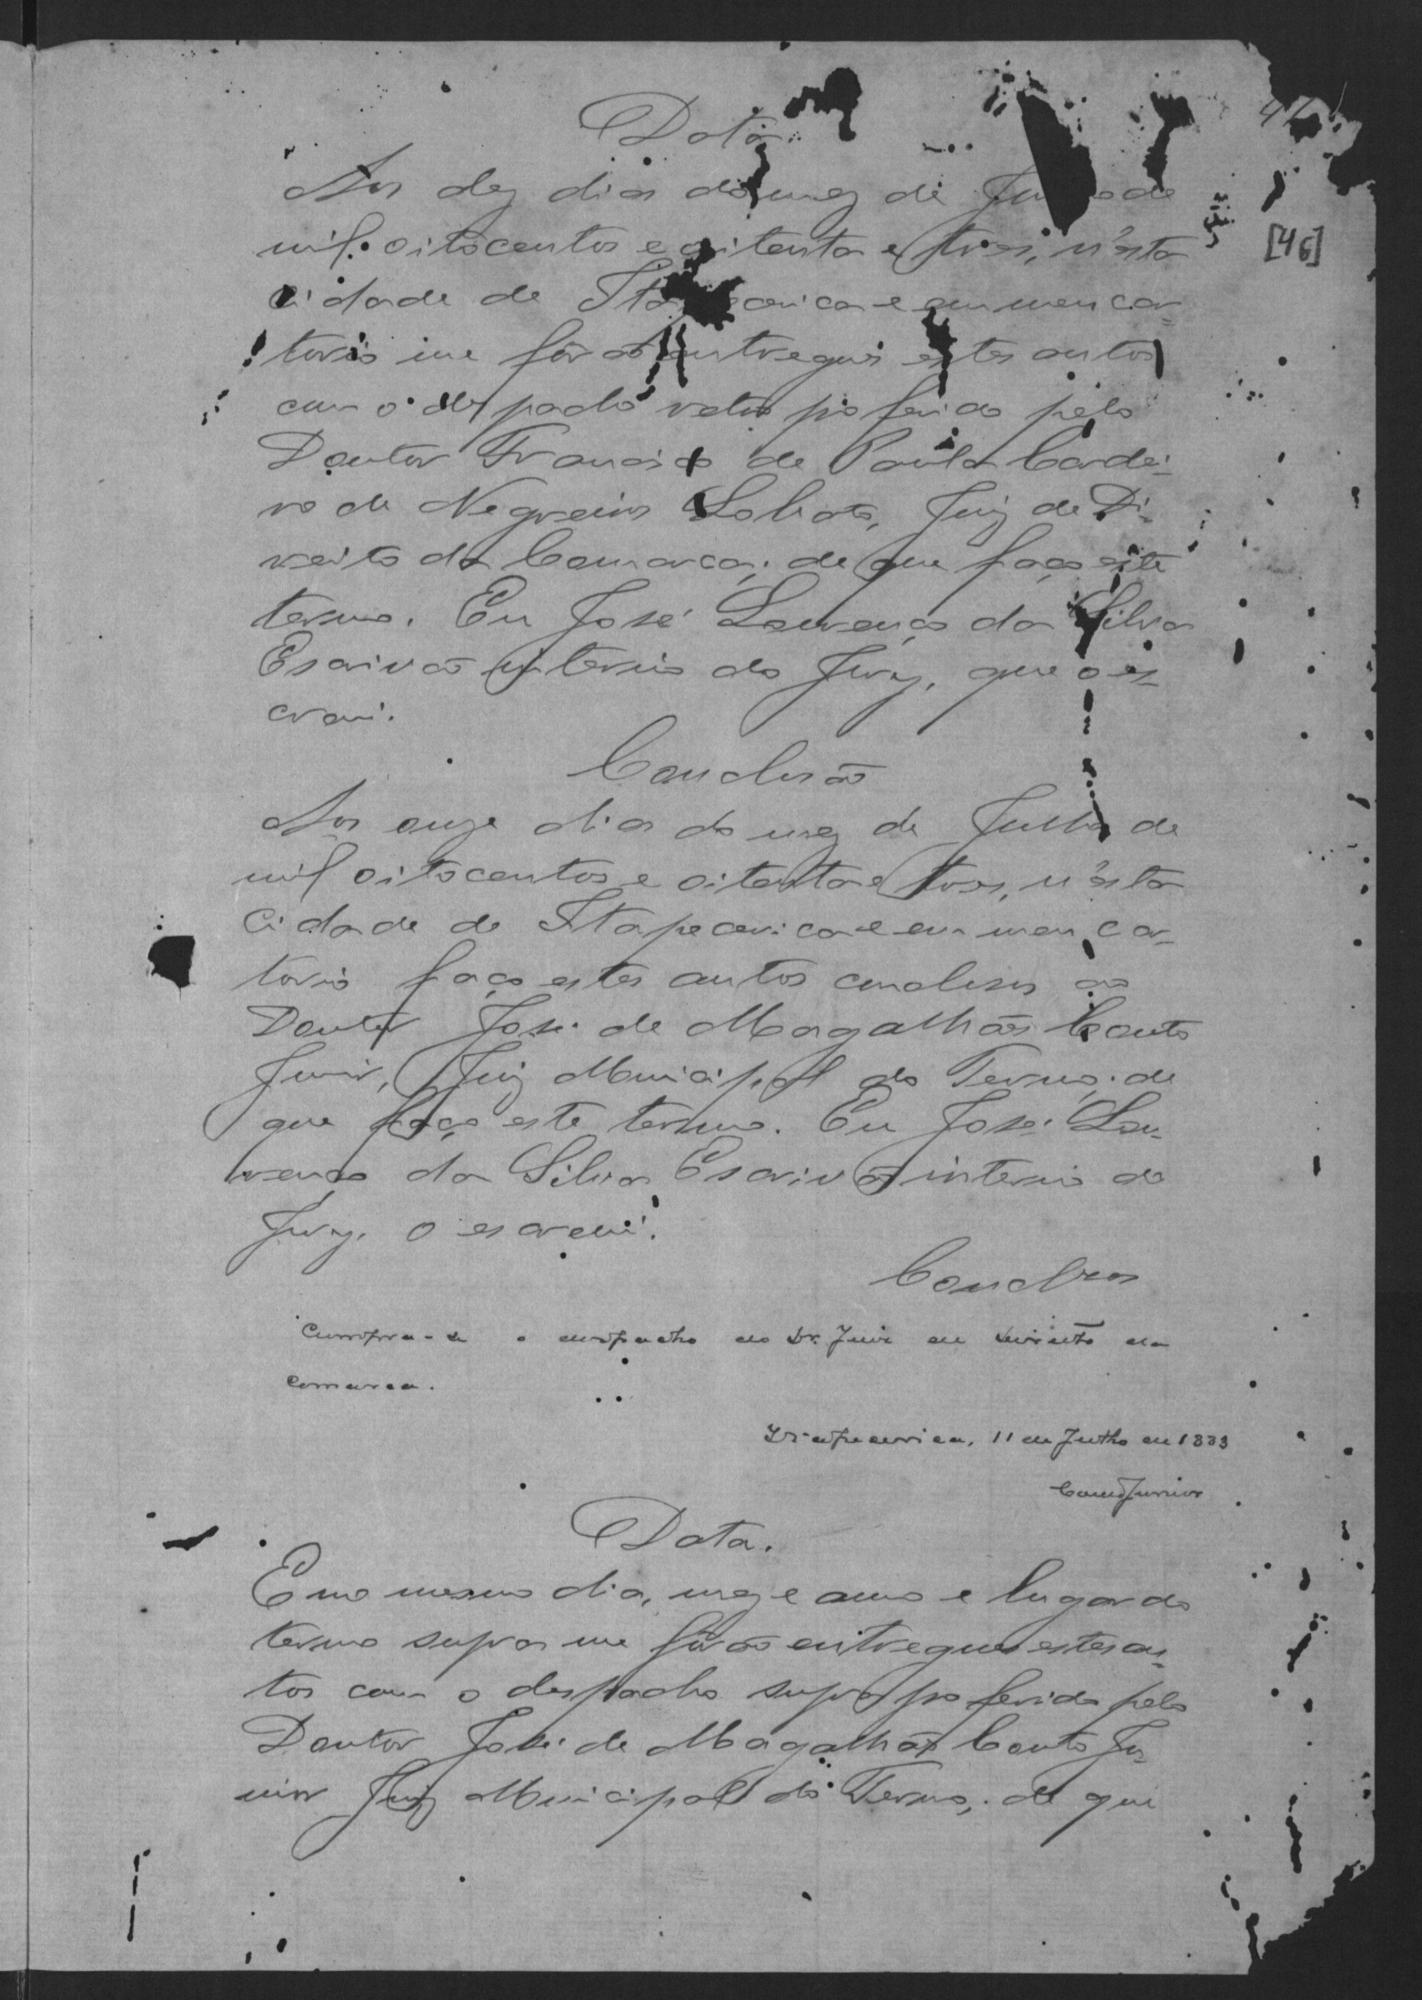 [46]
Data
Aos dez dias do mez de Julho de
mil oitocentos e oitenta e tres, n'esta
Cidade de Itapecerica e em meu car-
torio me forão entregues estes autos
com o despacho retro proferido pelo
Doutor Francisco de Paula Cordei-
ro de Negreiros Lobato, Juiz de Di-
reito da Comarca; de que faço este
termo. Eu José Lourenço da Silva
Escrivão interino do Jury, que o es-
crevi.
Conclusão
Aos onze dias do mez de Julho de
mil oitocentos e oitenta e tres, n'esta
Cidade de Itapecerica e em meu car-
torio faço estes autos conclusos ao
Doutor José de Magalhães Couto
Junior, Juiz Municipal do Termo; de
que faço este termo. Eu José Lou-
renço da Silva Escrivão interino do
Jury, o escrevi.
Conclusos
Cumpra-se o despacho do Dr. Juiz de Direito da
Comarca.
Itapecerica, 11 de Julho de 1883
Couto Junior
Data.
E no mesmo dia, mez e anno e lugar do
termo supra me forão entregues estes au-
tos com o despacho supra proferido pelo
Doutor José de Magalhães Couto Ju-
nior Juiz Municipal do Termo; de que